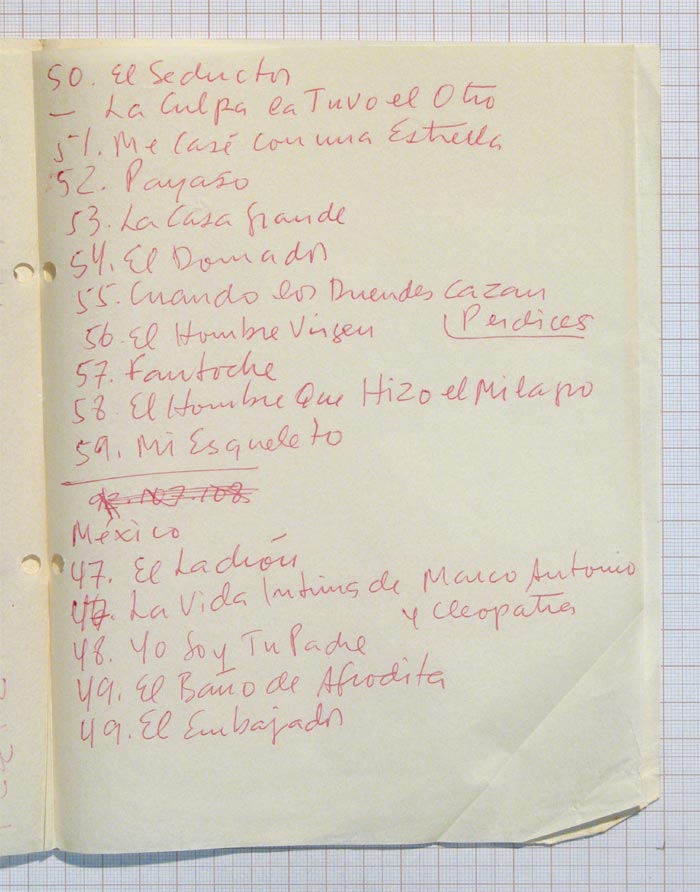 50. El Seductor
– La Culpa la Tuvo el Otro
51. Me Casé con una Estrella
52. Payaso
53. La Casa Grande
54. El Domador
55. Cuando los Duendes Cazan
Perdices
56. El Hombre Virgen
57. Fantoche
58 El Hombre Que Hizo el Milagro
59. Mi Esqueleto
México
47. El Ladrón
La Vida Intima de Marco Antonio
y Cleopatra
48. Yo Soy Tu Padre
49. El Baño de Afrodita
49. El Embajador